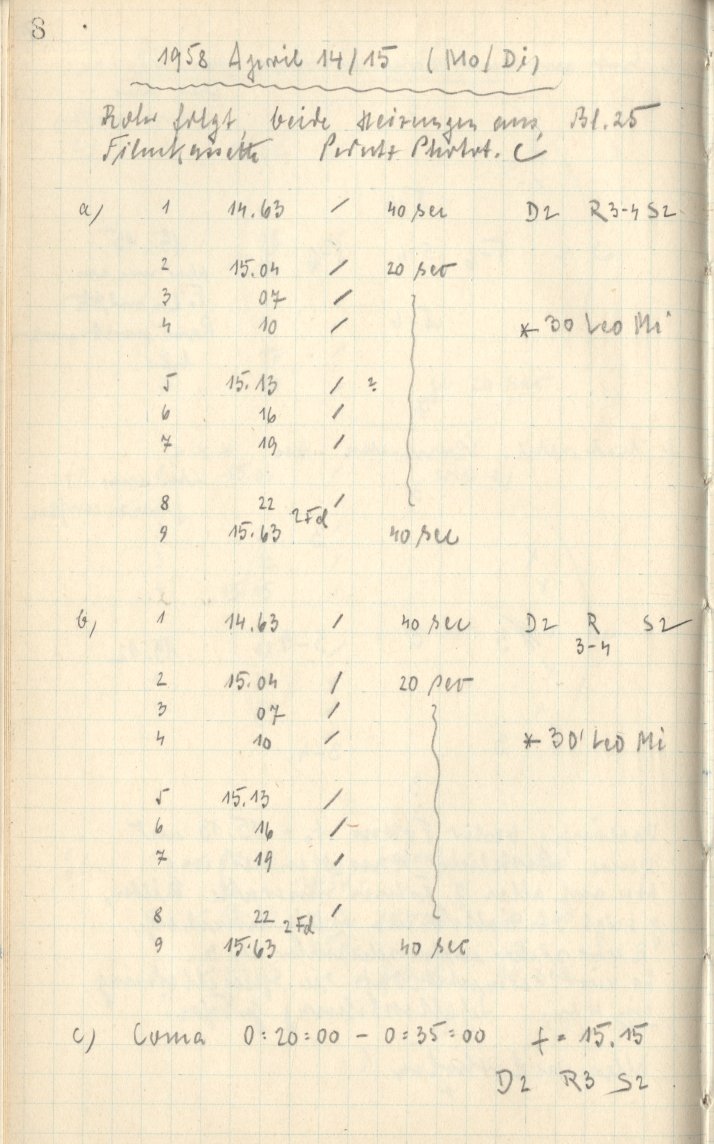 8
1958 April 14/15 (Mo/Di)
Rohr folgt, beide Heizungen aus, Bl. 25
Filmkassette Perutz C
a) 1 14.63 / 40 sec D2 R3-4 S2
2 15.04 / 20 sec
3 07 /
4 10 / * 30 Leo Mi
5 15.13 / ?
6 16 /
7 19 /
8 22 /
2 Fd
9 15.63 40 sec
b) 1 14.63 / 40 sec D2 R S2
3-4
2 15.04 / 20 sec
3 07 /
4 10 / * 30 Leo Mi
5 15.13 /
6 16 /
7 19 /
8 22 /
2 Fd
9 15.63 40 sec
c) Coma 0:20:00 - 0:35:00 f = 15.15
D2 R3 S2